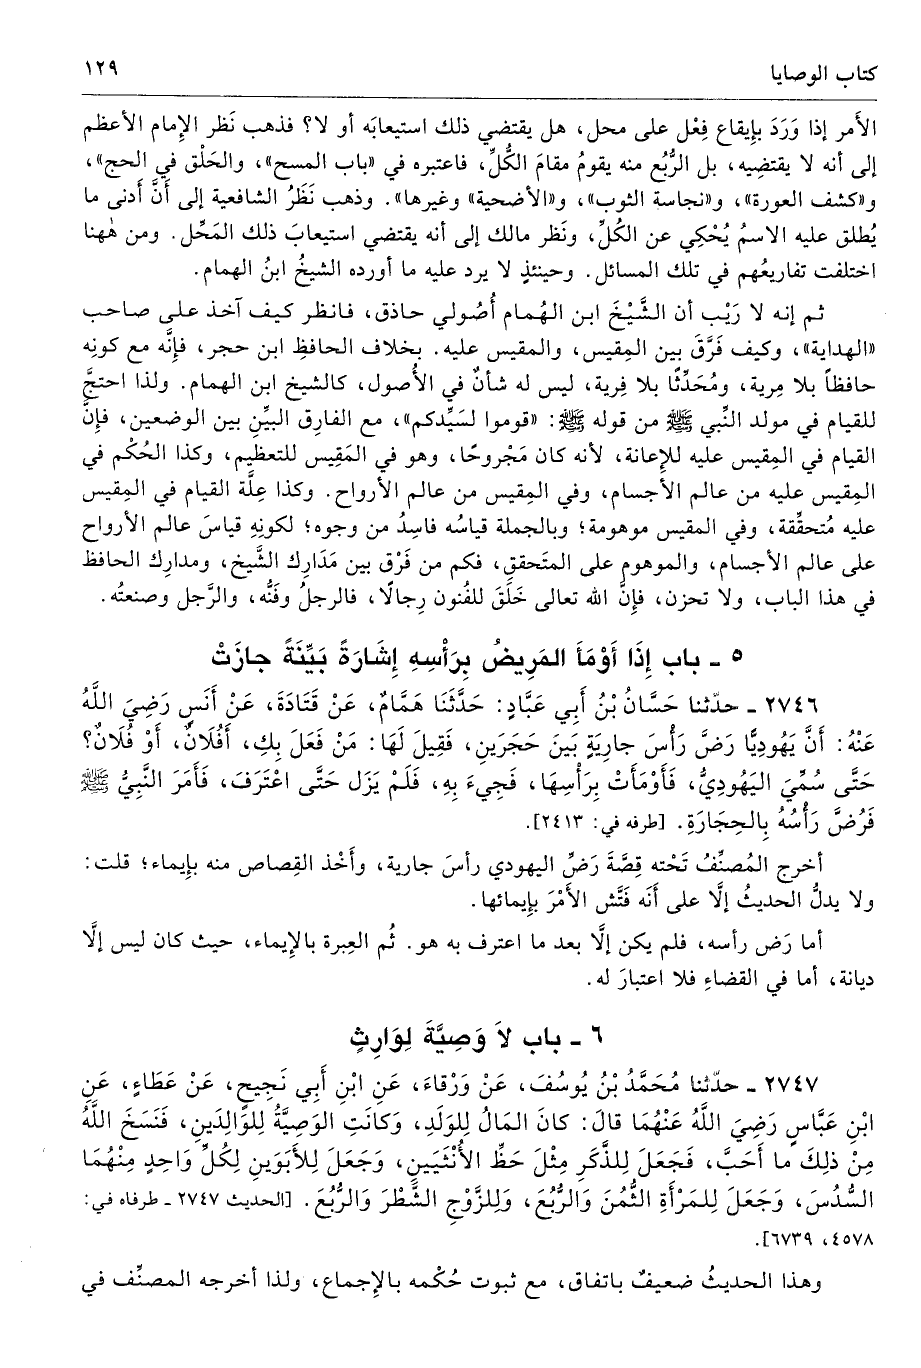 كتاب الوصايا
١٢٩
الأمر إذا وَرَدَ بإِيقاع فِعْل على محل، هل يقتضي ذلك استيعابَه أو لا؟ فذهب نَظر الإِمام الأعظم
إلى أنه لا يقتضِيه، بل الرُّبُع منه يقومُ مقامَ الكُلِّ، فاعتبره في «باب المسح»، والحَلْق في الحج»،
و«كشف العورة»، و«نجاسة الثوب»، و«الأضحية» وغيرها». وذهب نَظَرُ الشافعية إلى أَنَّ أدنى ما
يُطلق عليه الاسمُ يُحْكِي عن الكُلِّ، ونَظر مالك إلى أنه يقتضي استيعابَ ذلك المَحِّل. ومن هٰهنا
اختلفت تفاريعُهم في تلك المسائل. وحينئذٍ لا يرد عليه ما أورده الشيخُ ابنُ الهمام.
ثم إنه لا رَيْب أن الشَّيْخَ ابن الهُمام أُصُولي حاذق، فانظر كيف آخذ على صاحب
«الهداية»، وكيف فَرَّقَ بين المِقيس، والمقيس عليه. بخلاف الحافظِ ابن حجر، فإِنَّه مع كونِه
حافظاً بلا مِرية، ومُحَدِّثًا بلا فِرية، ليس له شأنٌ في الأُصول، كالشيخ ابن الهمام. ولذا احتجَّ
للقيام في مولد النَّبي ﷺ من قوله ﷺ: «قوموا لسَيِّدكم»، مع الفارِق البيِّن بين الوضعين، فإِنَّ
القيام في المِقيس عليه للإِعانة، لأنه كان مَجْروحًا، وهو في المَقِيس للتعظيم، وكذا الحُكْم في
المِقيس عليه من عالم الأجسام، وفي المِقيس من عالم الأرواح. وكذا عِلَّة القيام في المِقيس
عليه مُتحقِّقة، وفي المقيس موهومة؛ وبالجملة قياسُه فاسِدُ من وجوه؛ لكونِهِ قياسَ عالم الأرواح
على عالم الأجسام، والموهوم على المتَحقق، فكم من فَرْق بين مَدَارِك الشَّيخ، ومدارِك الحافظ
في هذا الباب، ولا تحزن، فإِنَّ الله تعالى خَلَقَ للفُنون رِجالًا، فالرجلُ وفَنُّه، والرَّجل وصنعتُه.
٥ ـ باب إِذَا أَوْمَأَ المَرِيضُ بِرَأْسِهِ إِشَارَةً بَيِّنَةً جازَتْ
٢٧٤٦ ـ حدّثنا حَسَّانُ بْنُ أَبِي عَبَّادٍ: حَدَّثَنَا هَمَّامٌ، عَنْ قَتَادَةَ، عَنْ أَنَسٍ رَضِيَ اللَّهُ
عَنْهُ: أَنَّ يَهُودِيًّا رَضَّ رَأْسَ جارِيَةٍ بَينَ حَجَرَينِ، فَقِيلَ لَهَا: مَنْ فَعَلَ بِكِ، أَفُلَانٌ، أَوْ فُلَانٌ؟
حَتَّى سُمِّيَ اليَهُودِيُّ، فَأَوْمَأَتْ بِرَأْسِهَا، فَجِيءَ بِهِ، فَلَمْ يَزَل حَتَّى اعْتَرَفَ، فَأَمَرَ النَّبِيُّ ﷺ
فَرُضَّ رَأْسُهُ بِالحِجَارَةِ. [طرفه في: ٢٤١٣].
أخرج المُصنِّفُ تَحْته قِصَّةَ رَضِّ اليهودي رأسَ جارية، وأَخْذ القِصاص منه بإِيماء؛ قلت:
ولا يدلُّ الحديثُ إلَّا على أَنَه فَتَّش الأَمْرَ بإِيمائها.
أما رَض رأسه، فلم يكن إلَّا بعد ما اعترف به هو. ثُم العِبرة بالإِيماء، حيث كان ليس إلَّا
ديانة، أما في القضاءِ فلا اعتبارَ له.
٦ ـ باب لاَ وَصِيَّةَ لِوَارِثٍ
٢٧٤٧ ـ حدّثنا مُحَمَّدُ بْنُ يُوسُفَ، عَنْ وَرْقاءَ، عَنِ ابْنِ أَبِي نَجِيحٍ، عَنْ عَطَاءٍ، عَنِ
ابْنِ عَبَّاسٍ رَضِيَ اللَّهُ عَنْهُمَا قالَ: كانَ المَالُ لِلوَلَدِ، وَكانَتِ الوَصِيَّةُ لِلوَالِدَينِ، فَنَسَخَ اللَّهُ
مِنْ ذلِكَ ما أَحَبَّ، فَجَعَلَ لِلذَّكَرِ مِثْلَ حَظِّ الأُنْثَيَينِ، وَجَعَلَ لِلأَبَوَينِ لِكُلِّ وَاحِدٍ مِنْهُمَا
السُّدُسَ، وَجَعَلَ لِلمَرْأَةِ الثُّمُنَ وَالرُّبُعَ، وَلِلزَّوْجِ الشَّطْرَ وَالرُّبُعَ. [الحديث ٢٧٤٧ ـ طرفاه في:
٤٥٧٨، ٦٧٣٩].
وهذا الحديثُ ضعيفٌ باتفاق، مع ثبوت حُكْمه بالإِجماع، ولذا أخرجه المصنِّف في